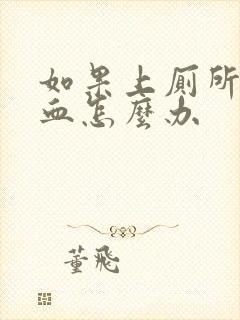 如果上厕所
血怎麼办
董飛